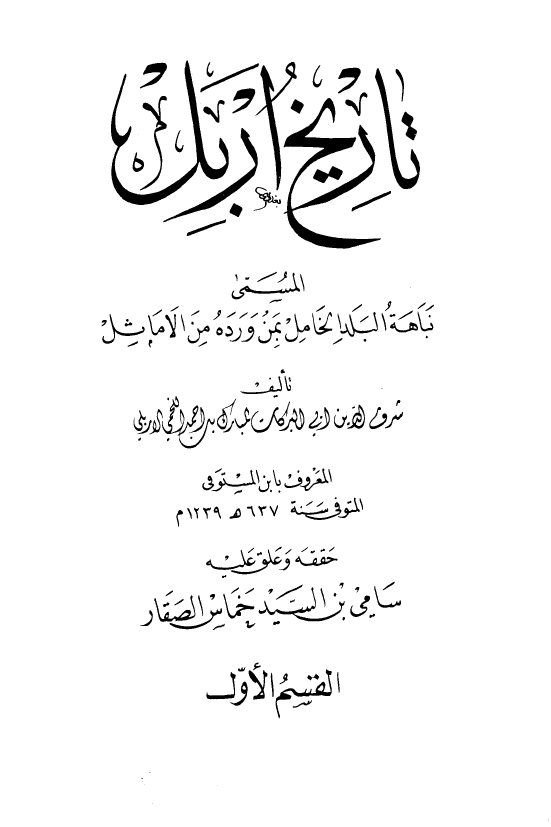 تاريخ اربل
المسمى
نباهة البلد الخامل بمن ورده من الاماثل
تأليف
شرف الدين ابي البركات المبارك بن احمد اللخمي الاربلي
المعروف بابن المستوفى
المتوفى سنة ٦٣٧ هـ ١٢٣٩ م
حققه وعلق عليه
سامي بن السيد خماس الصقار
القسم الأول